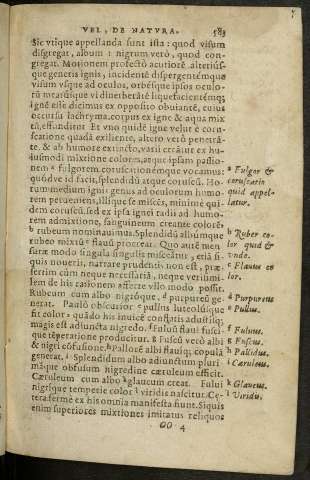 VEL, DE NATVRA. 583
Sic vtique appellanda sunt ista: quod visum
disgregat, album: nigrum verò, quod con-
gregat. Motionem profectò acutiorē alteriús-
que generis ignis, incidentē dispergentémque
visum vsque ad oculos, orbésque ipsos oculo-
rū meatúsque vi diuerberātē liquefacientémq;
ignē esse dicimus ex opposito obuiantē, cuius
occursu lachryma, corpus ex igne & aqua mix
tū, effunditur. Et vno quidē igne velut è corus-
scatione quadā exiliente, altero verò penetrā-
te. & ab humore extincto, varii creātur ex hu-
iusmodi mixtione colores, atque ipsam passio-
nem ᵃ fulgorem coruscationémque vocamus:
quódve id facit, splendidū atque coruscū. Ho-
rum medium ignis genus ad oculorum humo-
rem perueniens, illíque se miscēs, minimè qui-
dem coruscū, sed ex ipsa ignei radii ad humo-
rem admixtione, sanguineum creante colorē,
ᵇ rubeum nominauimus. Splendidū albúmque
rubeo mixtū ᶜ flauū procreat. Quo autē men-
suræ modo singula singulis misceātur, etiā si-
quis nouerit, narrare prudentis non est, præ-
sertim cùm neque necessariā, neque verisimi-
lem de his rationem afferre vllo modo possit.
Rubeum cum albo nigróque, ᵈ purpureū ge-
nerat. Paulò obscurior ᵉ pullus luteolúsque
fit color: quādo his inuicē constatis adustisq;
magis est adiuncta nigredo. ᶠ Fuluū flaui fusci-
que tēperatione producitur. ᵍ Fuscū verò albi
& nigri cōfusione. ʰ Pallorē albi flauiq; copula
generat. ⁱ Splendidum albo adiunctum pluri
máque obfusum nigredine cæruleum efficit.
Cæruleum cum albo ᵏ glaucum creat. Fului
nigrique temperie color ˡ viridis nascitur. Ce-
tera fermè ex his omnia manifesta fiunt. Siquis
enim superiores mixtiones imitatus reliquos
OO 4
ᵃ Fulgor &
coruscatio
quid appel-
latur.
ᵇ Ruber co-
lor quid &
vnde.
ᶜ Flauus co
lor.
ᵈ Purpureus
ᵉ Pullus.
ᶠ Fuluus.
ᵍ Fuscus.
ʰ Pallidus.
ⁱ Cæruleus.
ᵏ Glaucus.
ˡ Viridis.